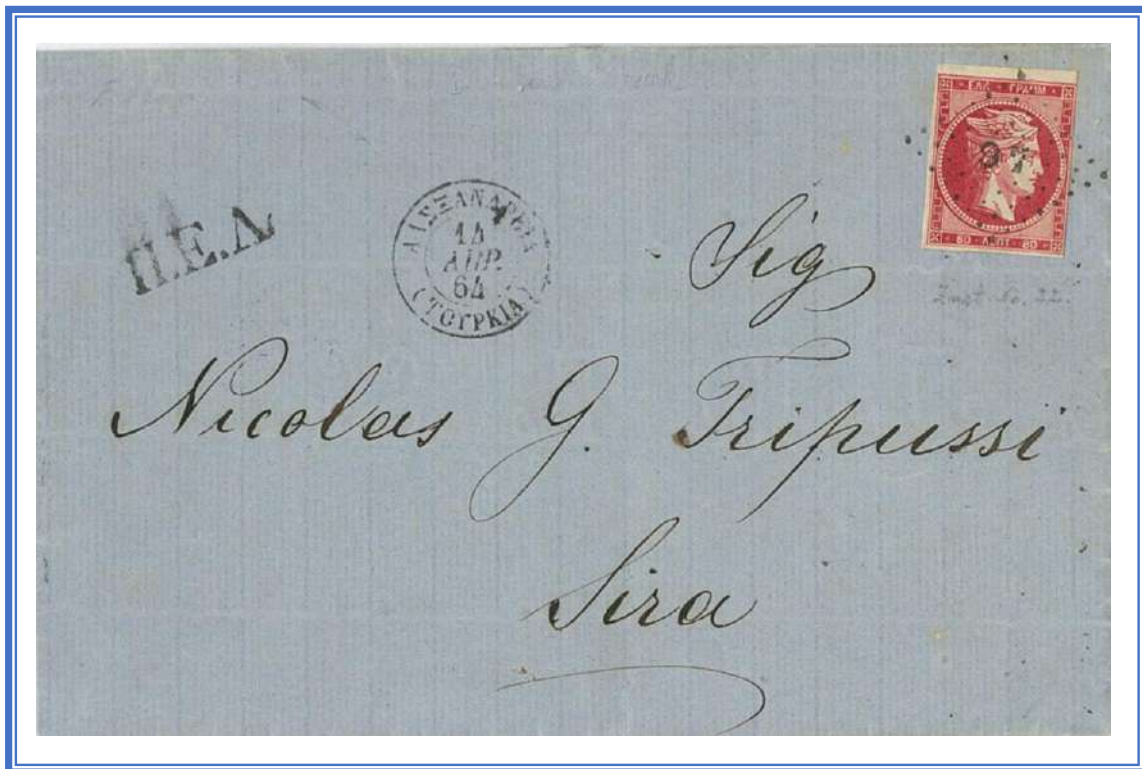 ΕΛΛ · ΓΡΑΜΜ
97
80 ΛΕΠΤ 80
Π.Ε.Λ.
ΑΛΕΞΑΝΔΡΕΙΑ
14
ΑΠΡ.
64
(ΤΟΥΡΚΙΑ)
Sig
Nicolas G. Tripussi
Sira